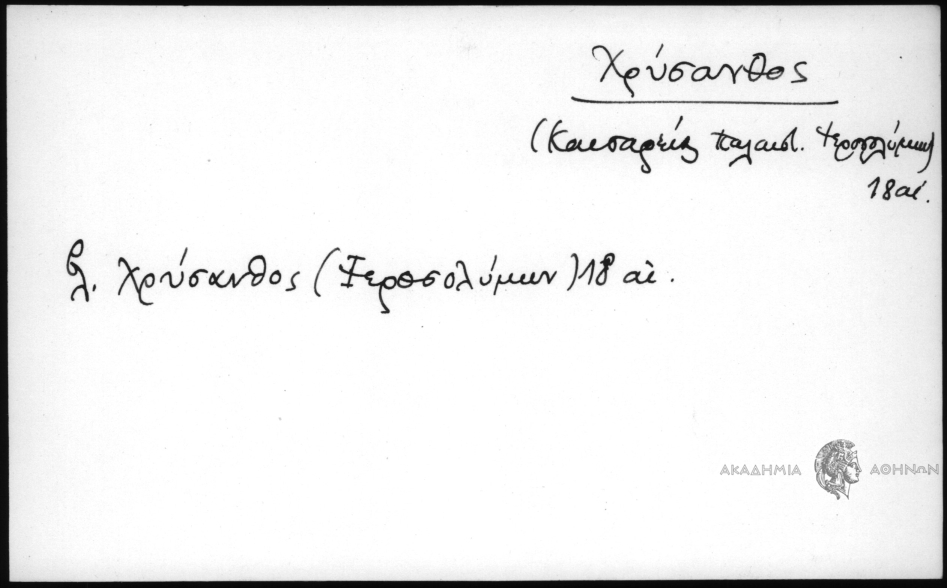 Χρύσανθος
(Καισαρείας Παλαιστ. Ἱεροσολύμων)
18 αἰ.
βλ. Χρύσανθος (Ἱεροσολύμων) 18 αἰ.
ΑΚΑΔΗΜΙΑ ΑΘΗΝΩΝ